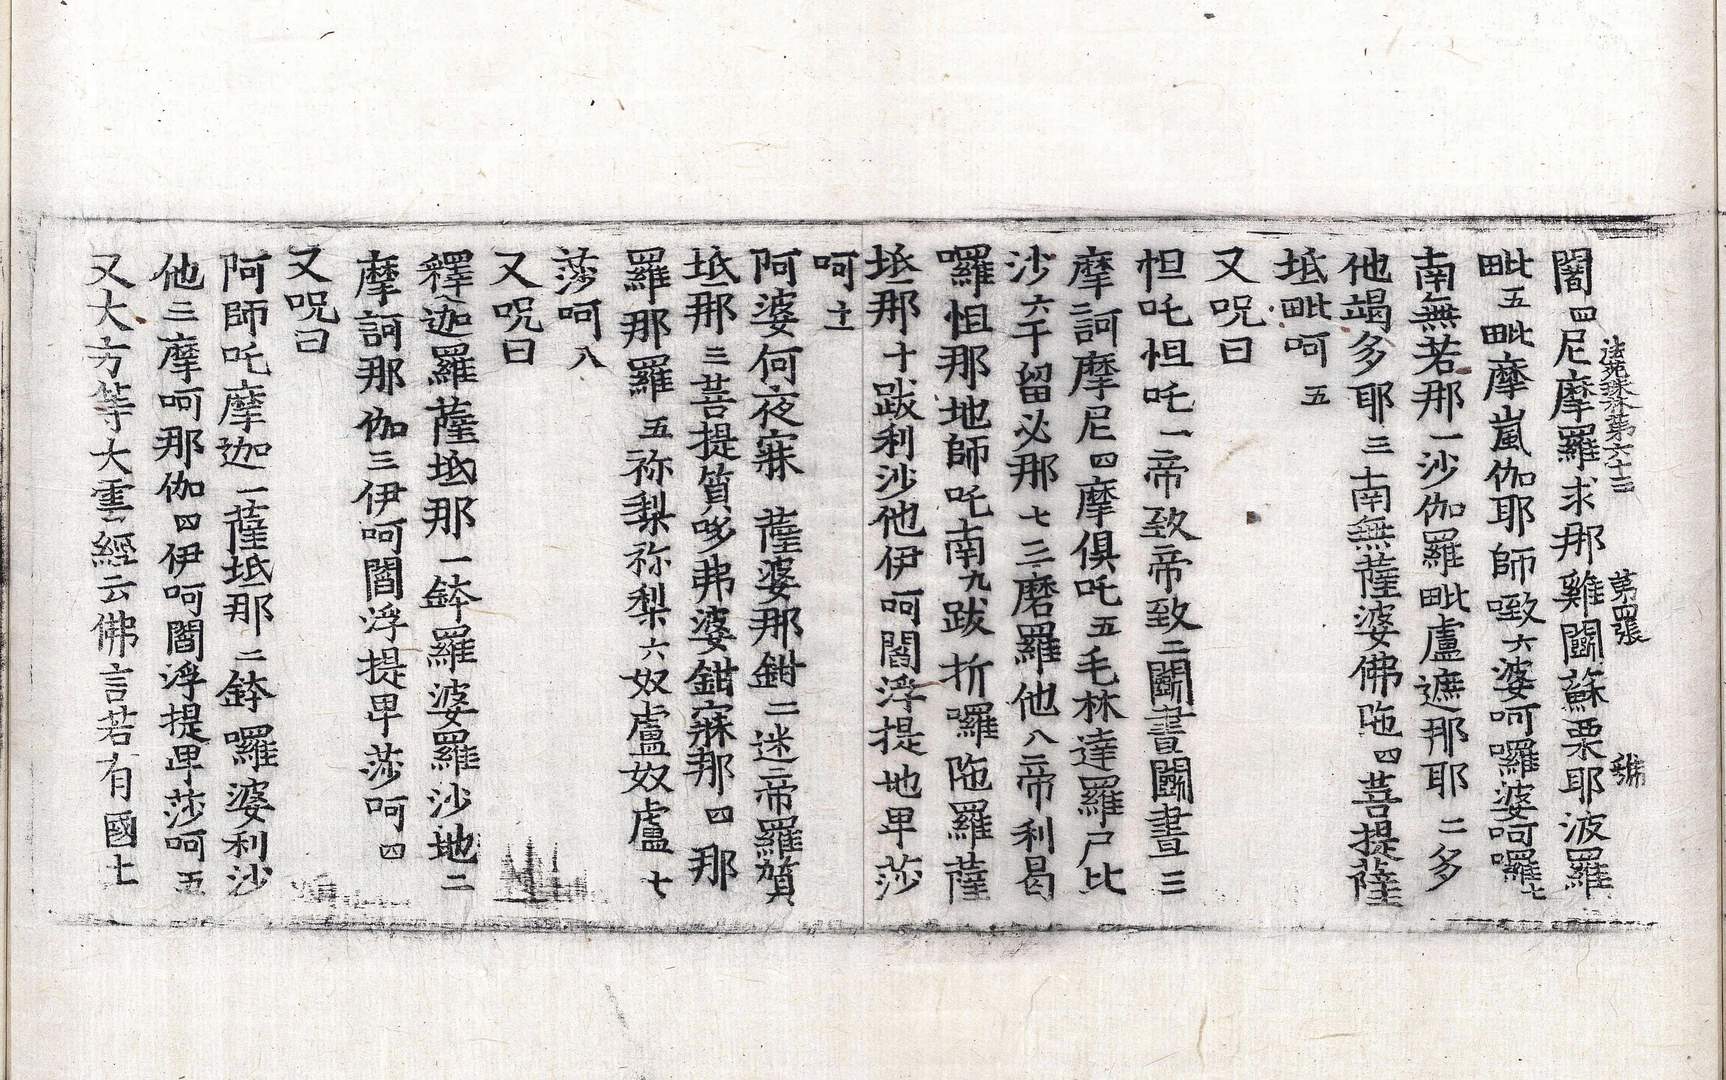 法苑珠林第六十三 第四張
闍四尼摩羅求那雞闘蘇栗耶波羅
毗五毗摩嵐伽耶師噉六婆呵囉婆呵囉七
南無若那一沙伽羅毗盧遮那耶二多
他竭多耶三南無薩婆佛陁四菩提薩
坻毗呵五
又呪曰
怛吒怛吒一帝致帝致二闘晝闘晝三
摩訶摩尼四摩俱吒五毛林達羅尸比
沙六于留必那七三磨羅他八帝利曷
囉怛那地師吒南九跋折囉陁羅薩
坻那十跋利沙他伊呵閻浮提地卑莎
呵十一
阿婆何夜寐 薩婆那鉗二迷帝羅頞
坻那三菩提質哆弗婆鉗寐那四那
羅那羅五祢梨祢梨六奴盧奴盧七
莎呵八
又呪曰
釋迦羅薩坻那一鉢羅婆羅沙地二
摩訶那伽三伊呵閻浮提卑莎呵四
又呪曰
阿師吒摩迦一薩坻那二鉢囉婆利沙
他三摩呵那伽四伊呵閻浮提卑莎呵五
又大方等大雲經云佛言若有國土